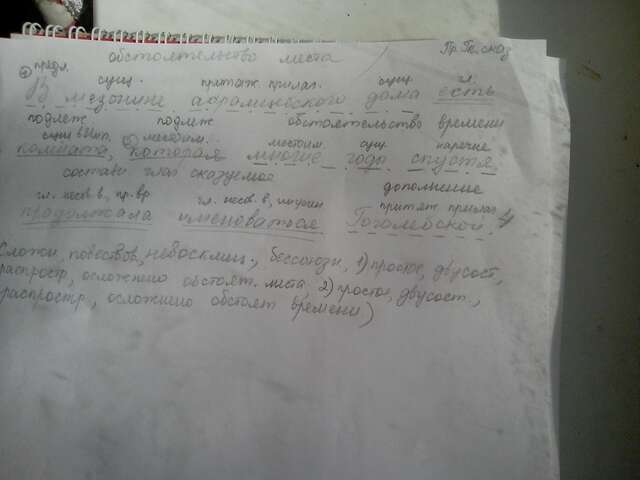 обстоятельство места Пр. Гл. сказ
① предл. сущ. притяж. прилаг. сущ. гл.
В мезонине абрамцевского дома есть
подлеж подлеж обстоятельство времени
сущ в И.п. ② местоим. местоим. сущ. наречие
комната, которая многие годы спустя,
составн глаг сказуемое дополнение
гл. несов. в, пр. вр гл. несов. в, инфин притяж прилаг
продолжала именоваться Гоголевской.
Сложн, повествов, невосклиц., бессоюзн, 1) простое, двусост,
распростр, осложнено обстоят. места, 2) простое, двусост,
распростр, осложнено обстоят времени)